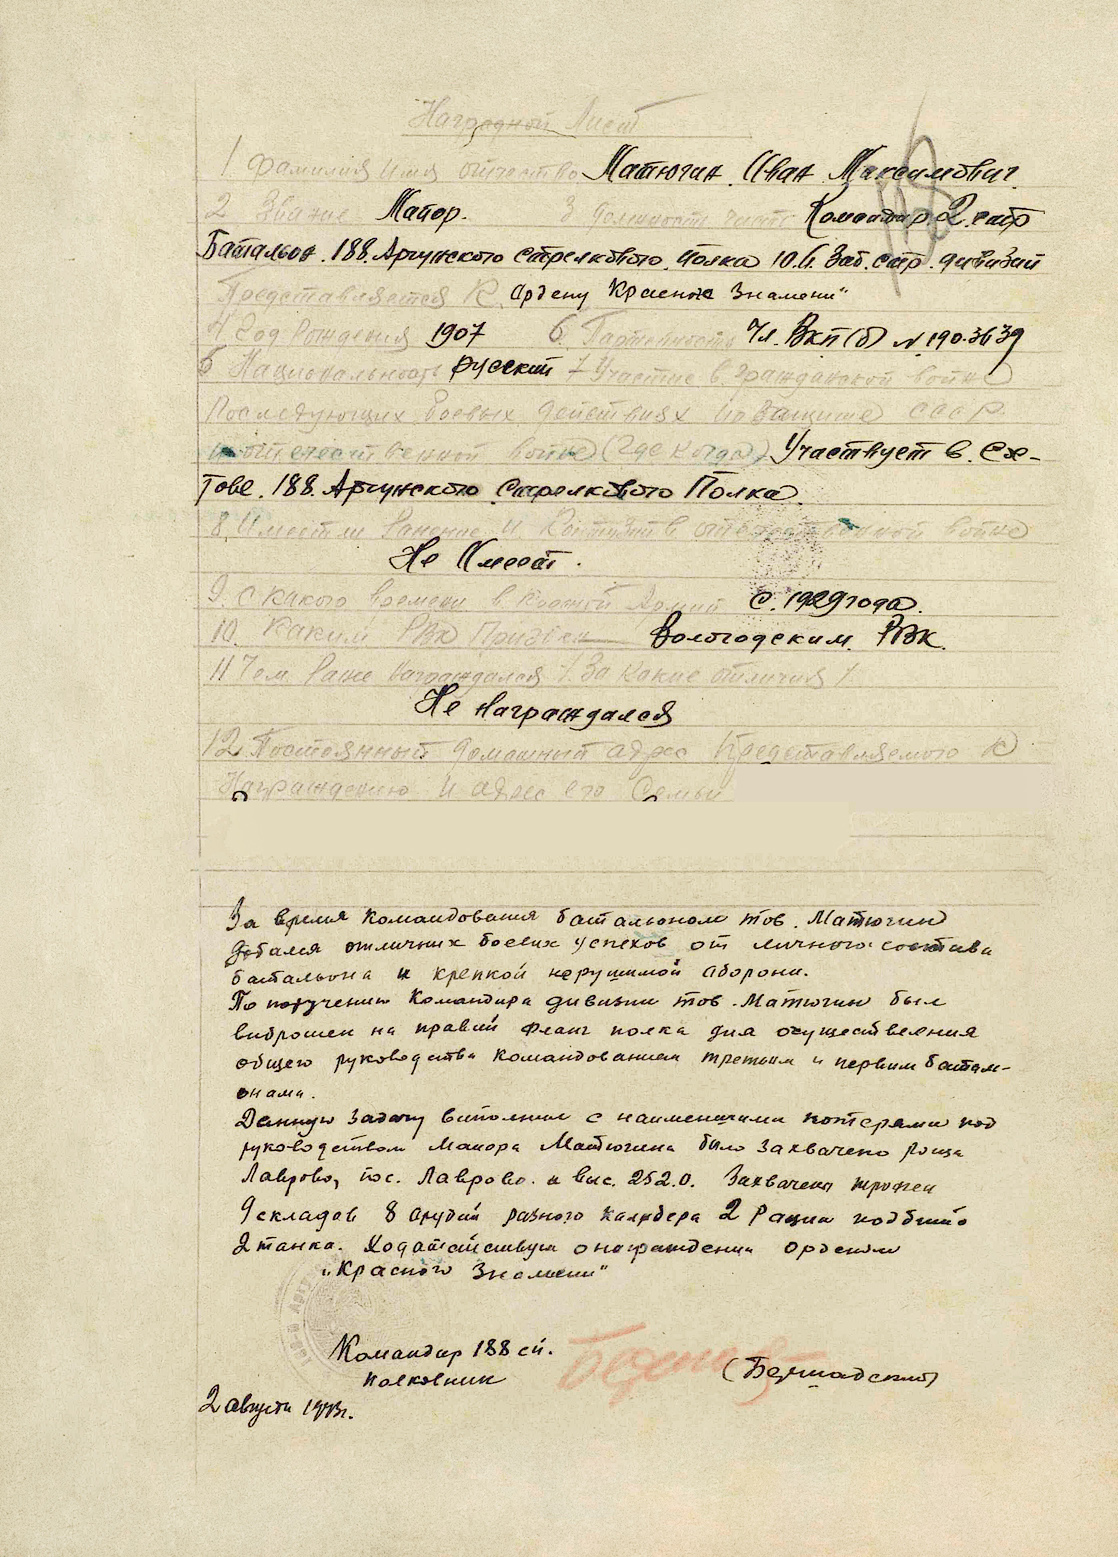 Наградной Лист
1 Фамилия имя отчество Матюгин Иван Максимович.
2 Звание Майор. 3 должность часть Командир 2. стр
Батальон. 188. Аргунского стрелкового. полка 10.6. Заб. стр. дивизии
Представляется К ордену Красное Знамени"
4 Год Рождения 1907 6. Партийность Чл. Вкп(б) № 190.3639
б Национальность русский 7 Участие в гражданской войне
Последующих боевых действиях по защите СССР.
и отечественной войне (где когда) Участвует в. со-
таве. 188. Аргунского Стрелкового Полка.
8. Имеет ли Ранение и Контузий в отечественной войне
Не Имеет.
9. с какого времени в Красной Армии с. 1929 года.
10. Каким РВК Призван Вологодским. РВК.
11 Чем Ранее награждался / За какие отличия /
Не награждался
12 Постоянный домашный адрес Представляемого к
Награждению И адрес его Семьи
За время командования батальоном тов. Матюгин
добался отличних боевих успехов от личного состава
батальона и крепкой нерушимой оборони.
По поручению командира дивизии тов. Матюгин был
виброшен на правий фланг полка для осуществления
общего руководства командованием третьим и первим батал-
онами.
Данную задачу виполнил с наименшими потерями под
руководством майора Матюгина било захвачено роща
Лаврово, пос. Лаврово. и выс. 252.0. Захвачени трофеи
9 складов 8 орудий разного калибера 2 Рации подбито
2 танка. Ходатайствую о награждении орденом
"Красного Знамени"
Командир 188 сп.
полковник (Бершадский)
2 августа 1943г.